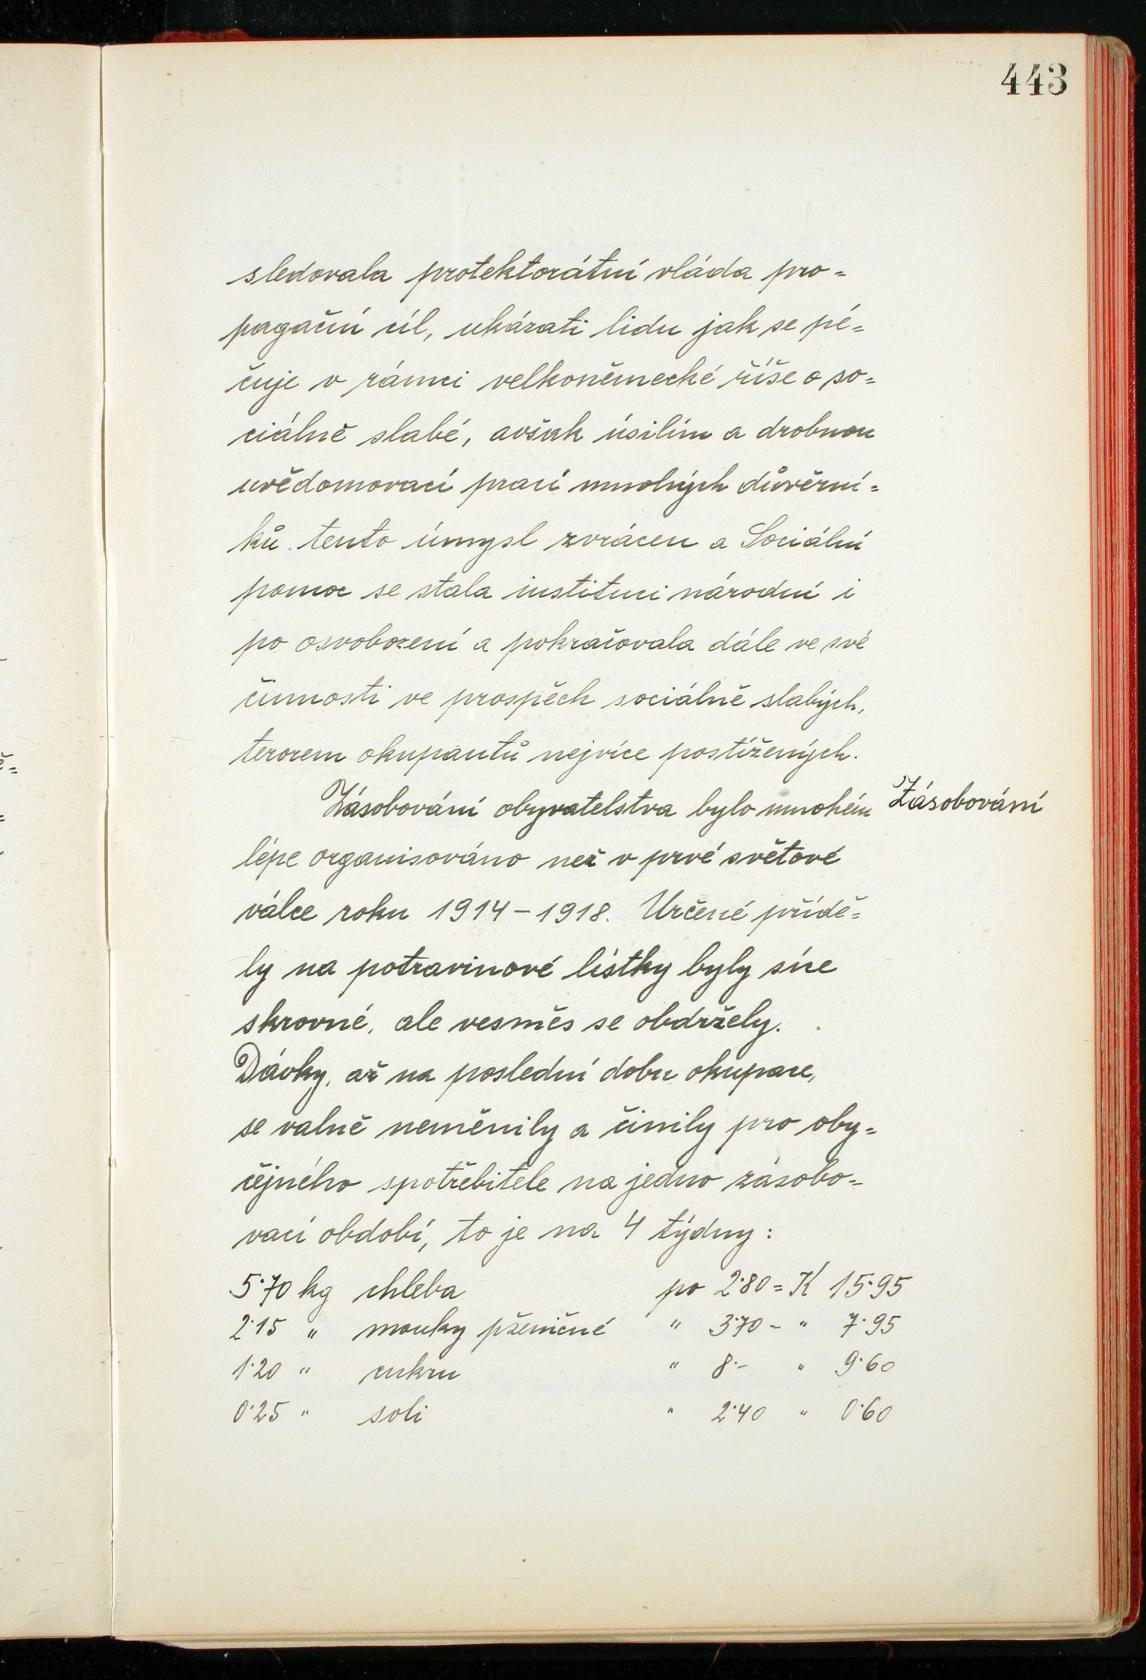 443
sledovala protektorátní vláda pro=
pagační cíl, ukázati lidu jak se pé=
čuje v rámci velkoněmecké říše o so=
ciálně slabé, avšak úsilím a drobnou
uvědomovací prací mnohých důvěrní=
ků tento úmysl zvrácen a Sociální
pomoc se stala institucí národní i
po osvobození a pokračovala dále ve své
činnosti ve prospěch sociálně slabých,
terorem okupantů nejvíce postižených.
Zásobování obyvatelstva bylo mnohém
Zásobování
lépe organisováno než v prvé světové
válce roku 1914-1918. Určené přídě=
ly na potravinové lístky byly síce
skrovné, ale vesměs se obdržely.
Dávky, až na poslední dobu okupace,
se valně neměnily a činily pro oby=
čejného spotřebitele na jedno zásobo=
vací období, to je na 4 týdny:
5·70 kg chleba po 2·80 = K 15·95
2·15 " mouky pšeničné " 3·70 - " 7·95
1·20 " cukru " 8·- " 9·60
0·25 " soli " 2·40 " 0·60